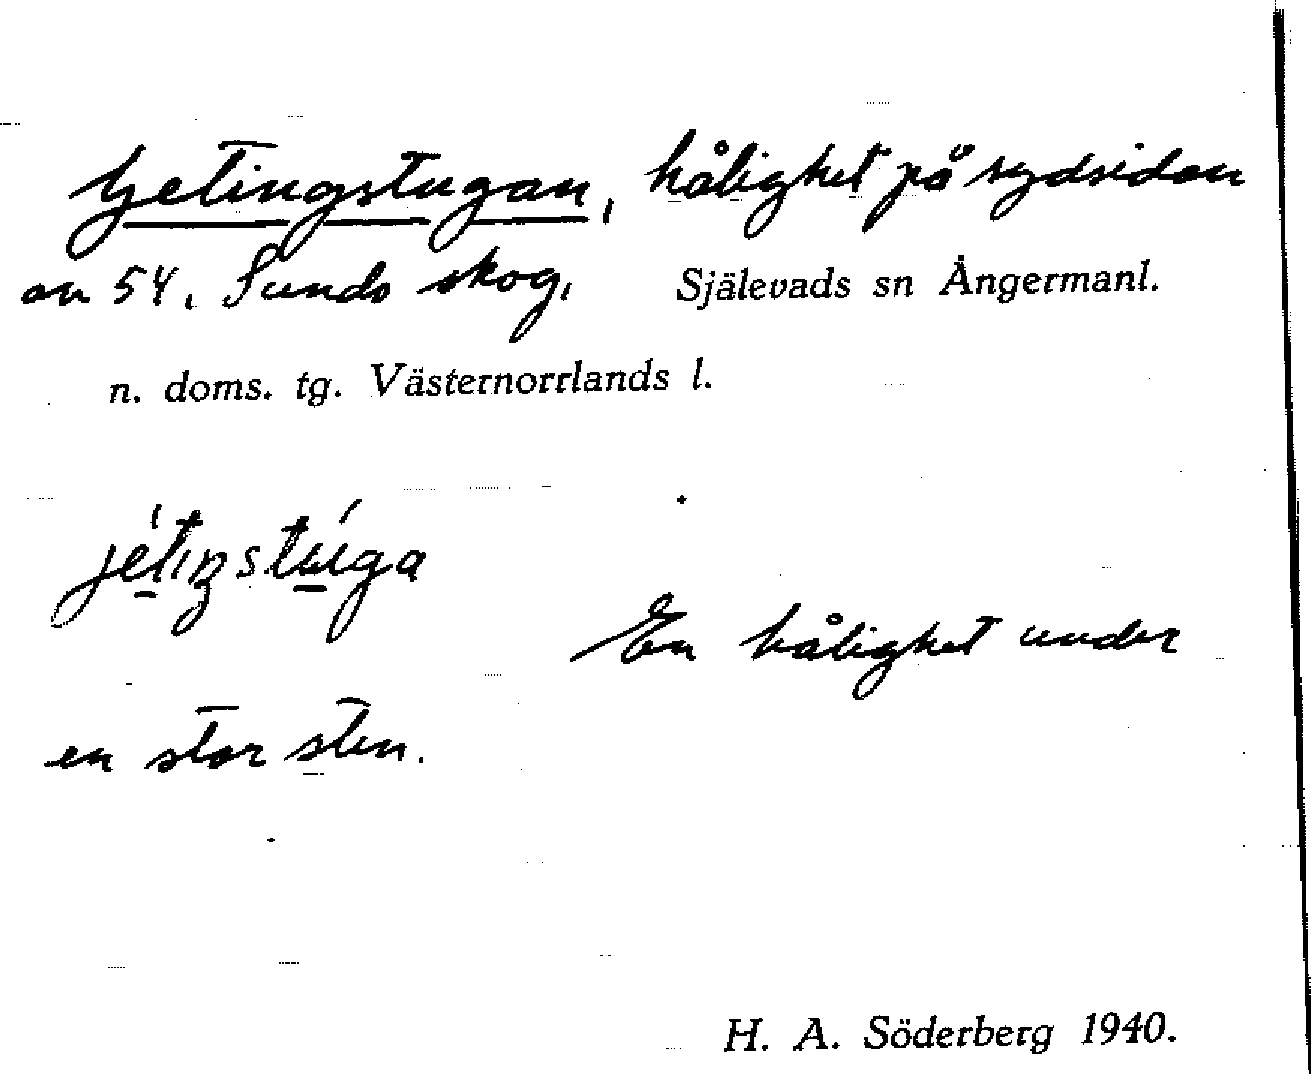 Getingstugan, hålighet på sydsidan
av 54. Sunds skog. Själevads sn Ångermanl.
n. doms. tg. Västernorrlands l.
En hålighet under
en stor sten.
H. A. Söderberg 1940.